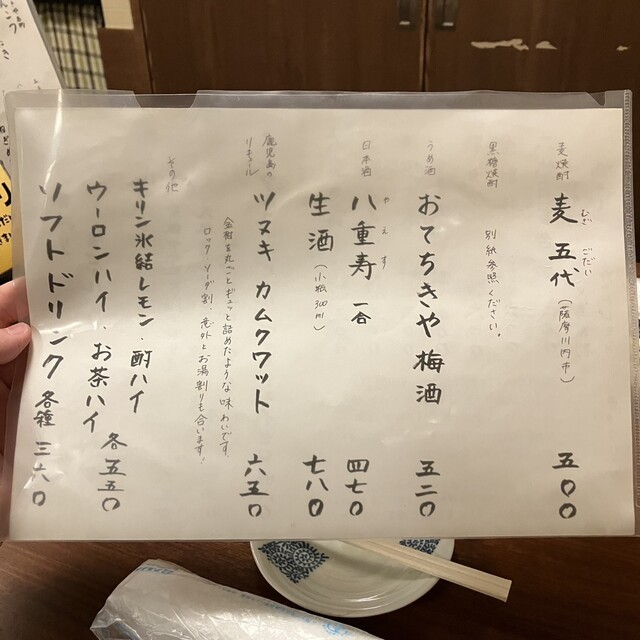 麦焼酎
麦 五代 (薩摩川内市) 五〇〇
むぎ ごだい
黒糖焼酎
別紙参照ください。
うめ酒
おてちきや梅酒 五二〇
日本酒
八重寿 一合 四七〇
やえす
生酒 (小瓶300ml) 七八〇
鹿児島の
リキュール
ツヌキ カムクワット 六五〇
金柑を丸ごとギュっと詰めたような味わいです。
ロック、ソーダ割、意外とお湯割りも合います!
その他
キリン氷結レモン・酎ハイ
ウーロンハイ・お茶ハイ 各五五〇
ソフトドリンク 各種 三六〇